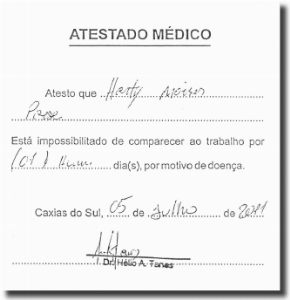 ATESTADO MÉDICO
Atesto que
Está impossibilitado de comparecer ao trabalho por
dia(s), por motivo de doença.
Caxias do Sul, 05 de Julho de 2011
Dr. Hélio A. Tanes